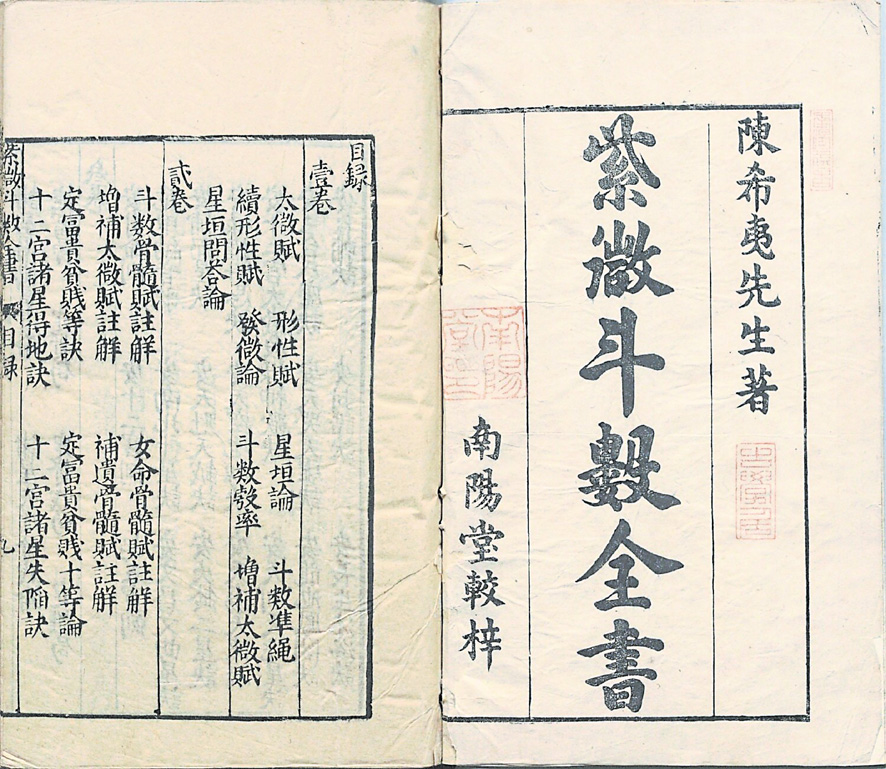 陳希夷先生著
紫微斗數全書
南陽堂較梓
南陽
堂
目録
壹卷
太微賦　形性賦　星垣論　斗数凖繩
續形性賦　發微論　斗数彀率　増補太微賦
星垣問答論
貳卷
斗数骨髓賦註觧　女命骨髓賦註觧
増補太微賦註觧　補遺骨髓賦註觧
定富貴貧賎等訣　定富貴貧賎十等論
十二宫諸星得地訣　十二宫諸星失陥訣
紫微斗数全書　目録　九